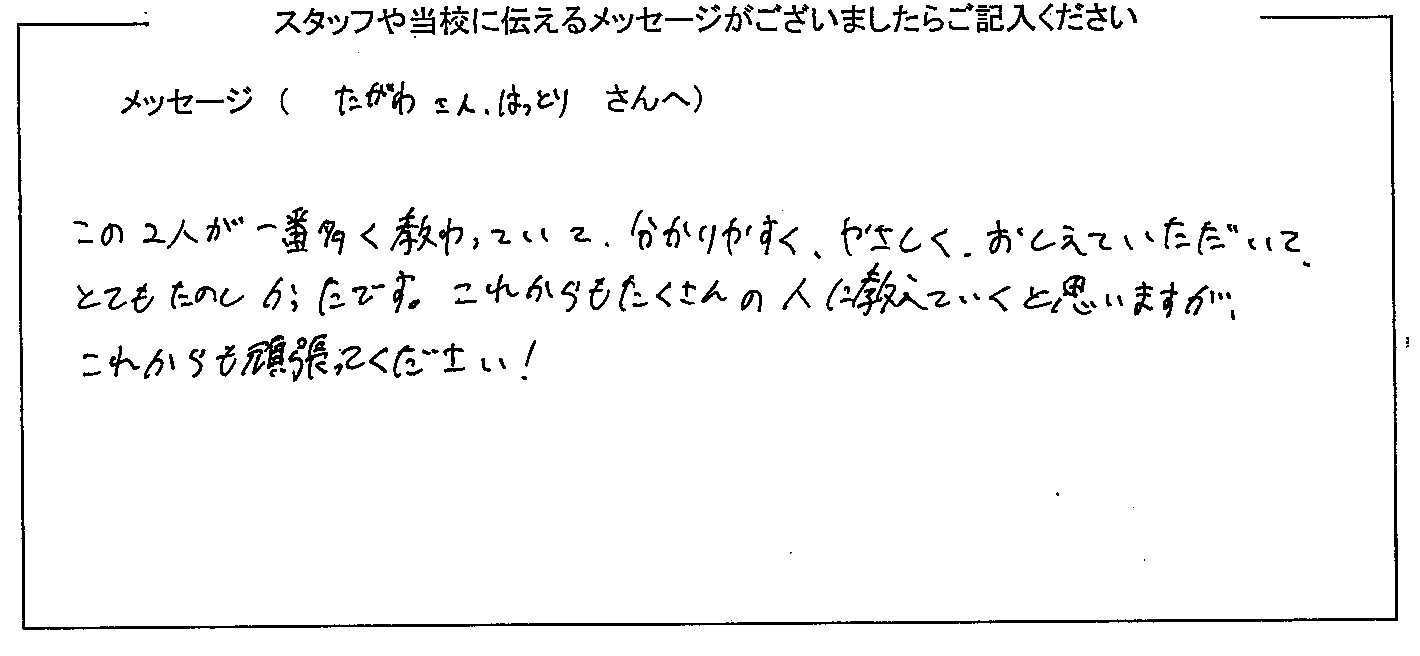 スタッフや当校に伝えるメッセージがございましたらご記入ください
メッセージ（ たがわさん、はっとり さんへ）
この2人が一番多く教わっていて、分かりやすく、やさしく、おしえていただいて、
とてもたのしかったです。これからもたくさんの人に教えていくと思いますが、
これからも頑張ってください！